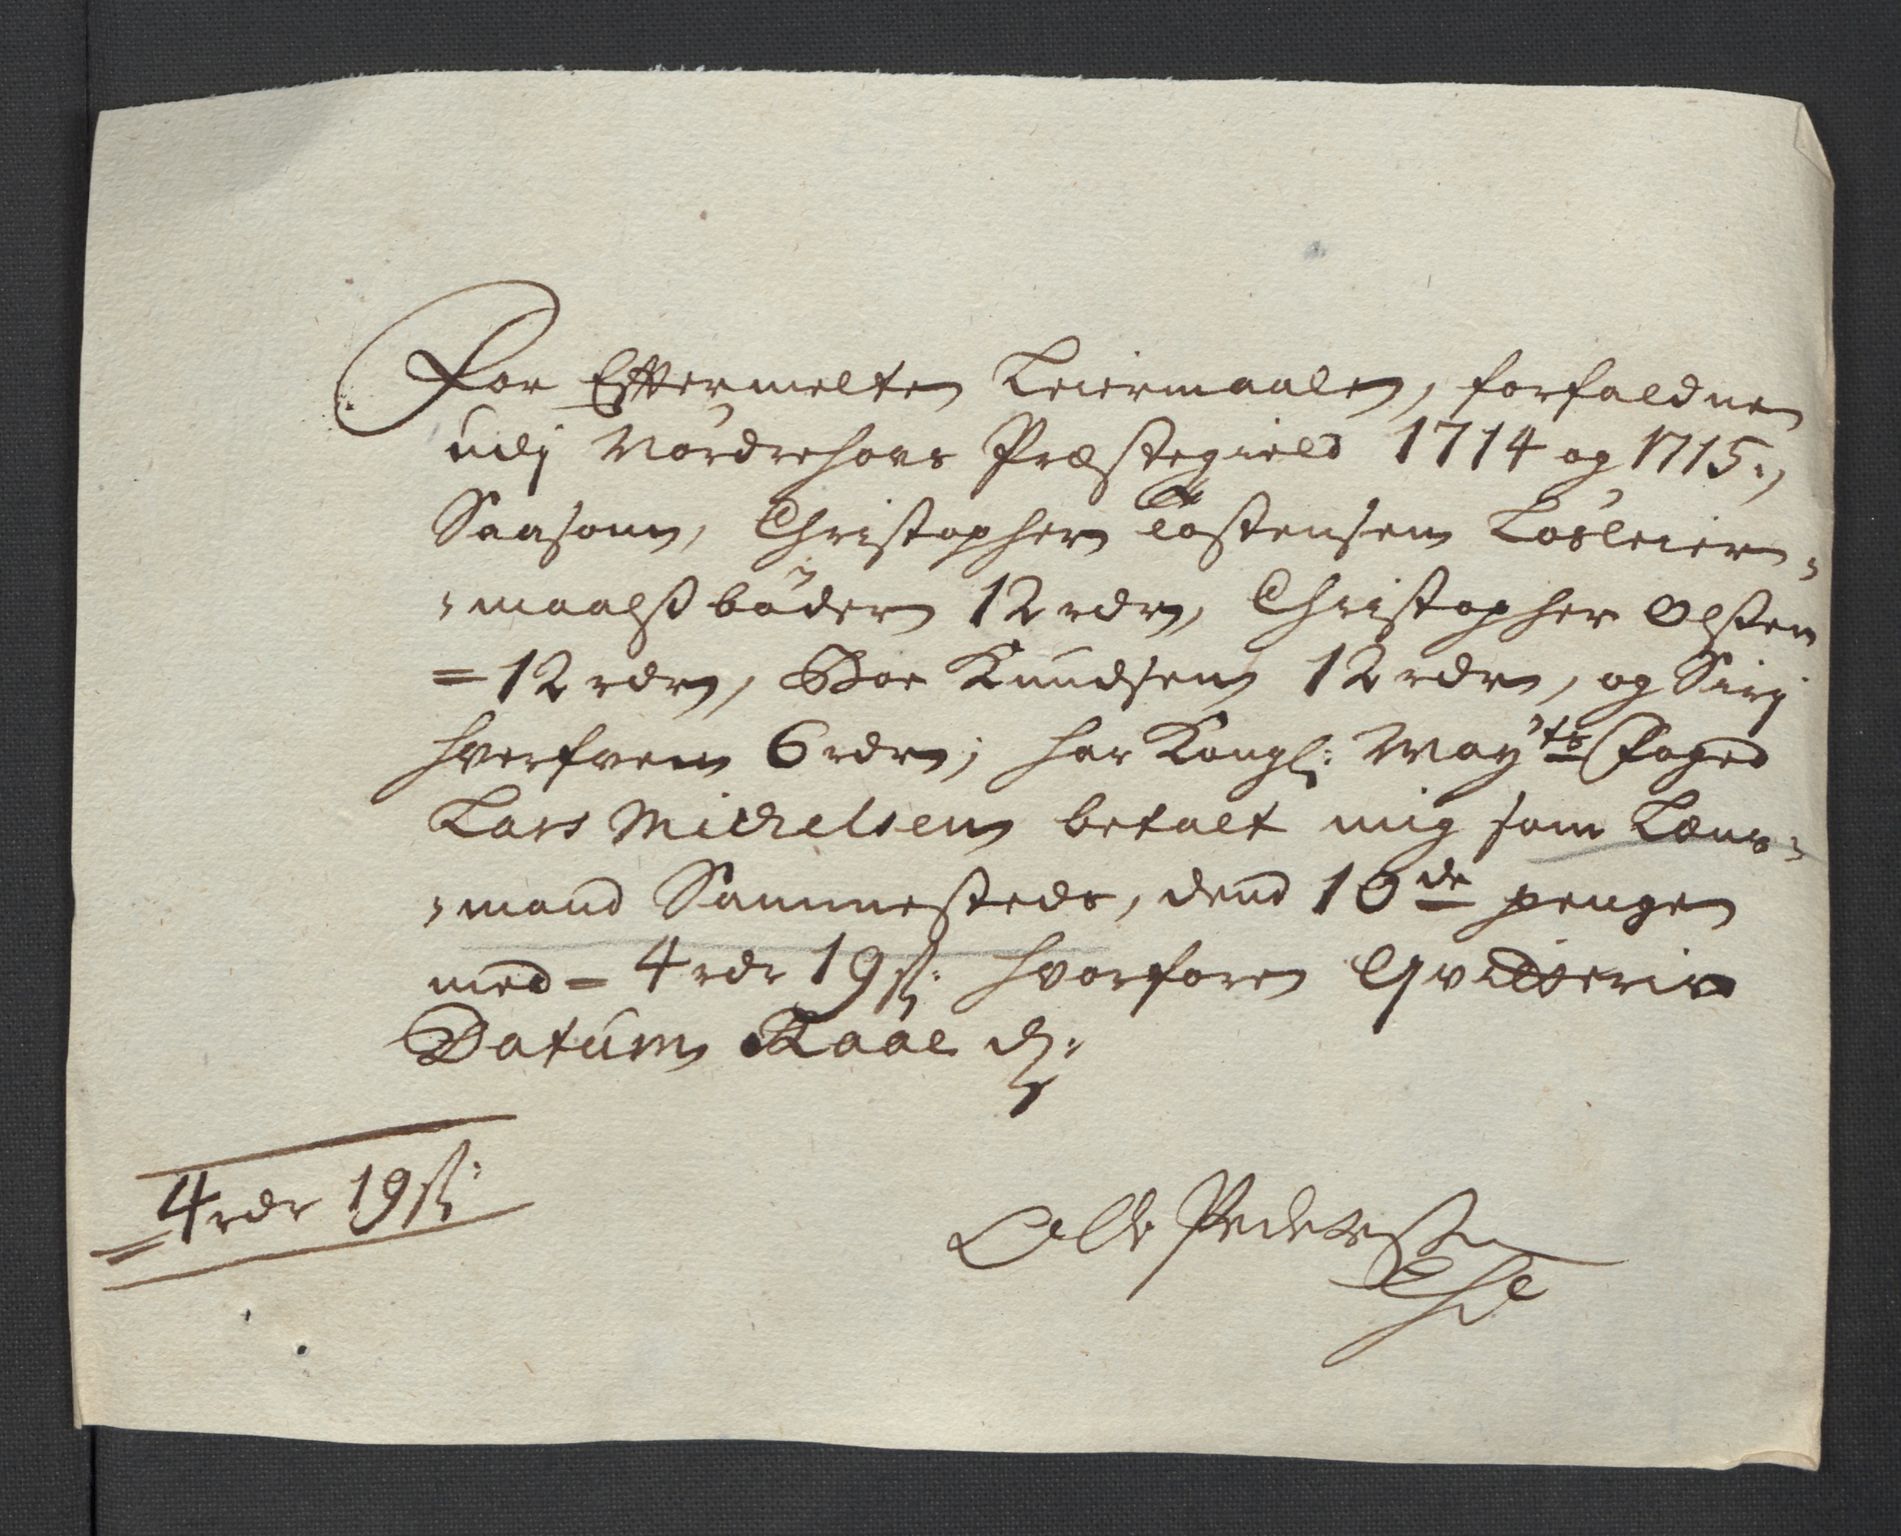 For Eftermelte Leiermaaler, forfaldne
udj Nordrehoes Præstegield 1714 og 1715.,
Saasom, Christopher Tostensen Løsleier-
-maalsbøder 12 rdr, Christopher Olsen
= 12 rdr, Boe Knudsen 12 rdr, og Siri
hverfven 6 rdr; har Kongl: May:ts Foged
Lars Michelsen betalt mig som Læns-
-mand Sammesteds, dend 10de penge
med = 4 rdr 19 s: hvorfore Qvitterir
Datum Raae d:
= 4 rdr 19 s:
Olle Pedersen